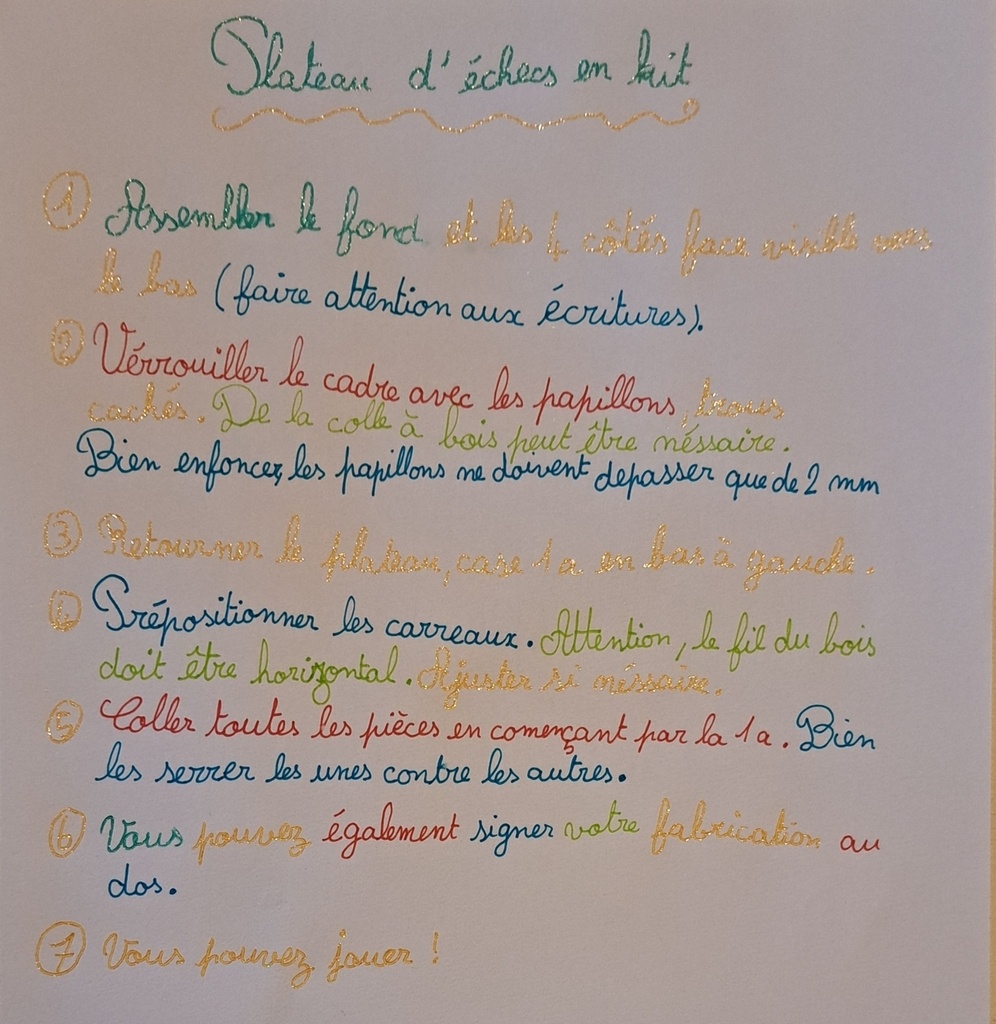 Plateau d'échecs en kit
① Assembler le fond et les 4 côtés face visible vers
le bas (faire attention aux écritures).
② Vérrouiller le cadre avec les papillons, trous
cachés. De la colle à bois peut être néssaire.
Bien enfoncer, les papillons ne doivent depasser que de 2 mm
③ Retourner le plateau, case 1a en bas à gauche.
④ Prépositionner les carreaux. Attention, le fil du bois
doit être horizontal. Ajuster si néssaire.
⑤ Coller toutes les pièces en començant par la 1a. Bien
les serrer les unes contre les autres.
⑥ Vous pouvez également signer votre fabrication au
dos.
⑦ Vous pouvez jouer !